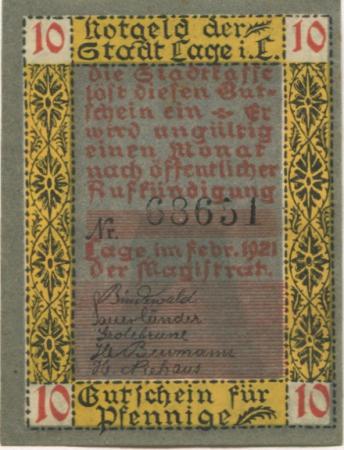 10 Notgeld der 10
Stadt Lage i. L.
die Stadtkasse
löst diesen Gut-
schein ein Er
wird ungültig
einen Monat
nach öffentlicher
Aufkündigung
Nr. 68651
Lage, im Febr. 1921
Der Magistrat.
Bindewald
Sauerländer
Grotebrune
H. Niehaus
10 Gutschein für 10
Pfennige